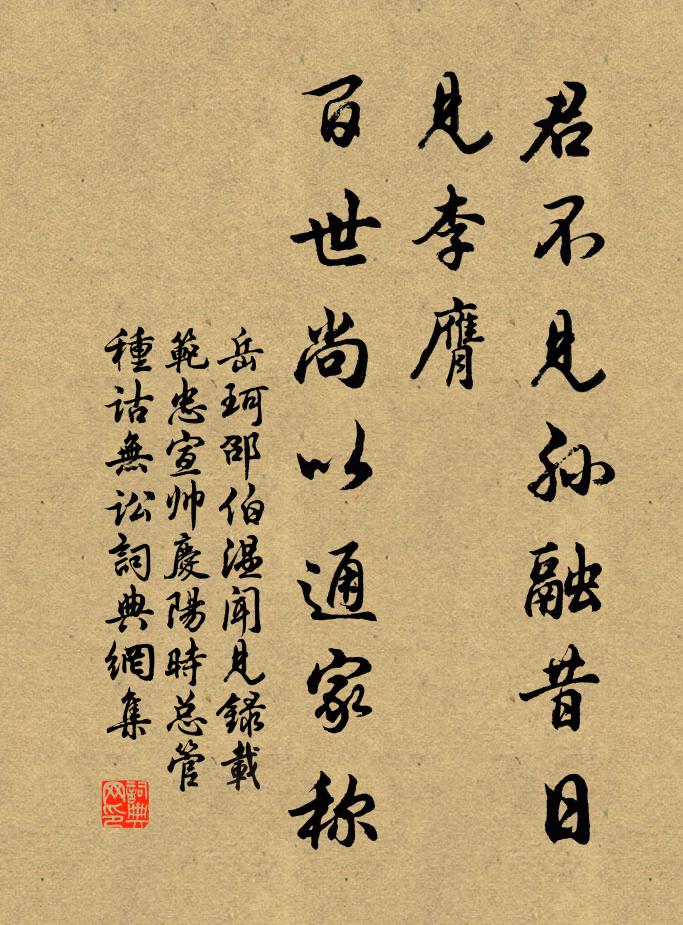 君不見孙融昔日
見李膺
百世尚以通家称
岳珂邵伯温聞見録載
範忠宣帅慶陽時总管
種詁無讼詞典網集
詞典网印